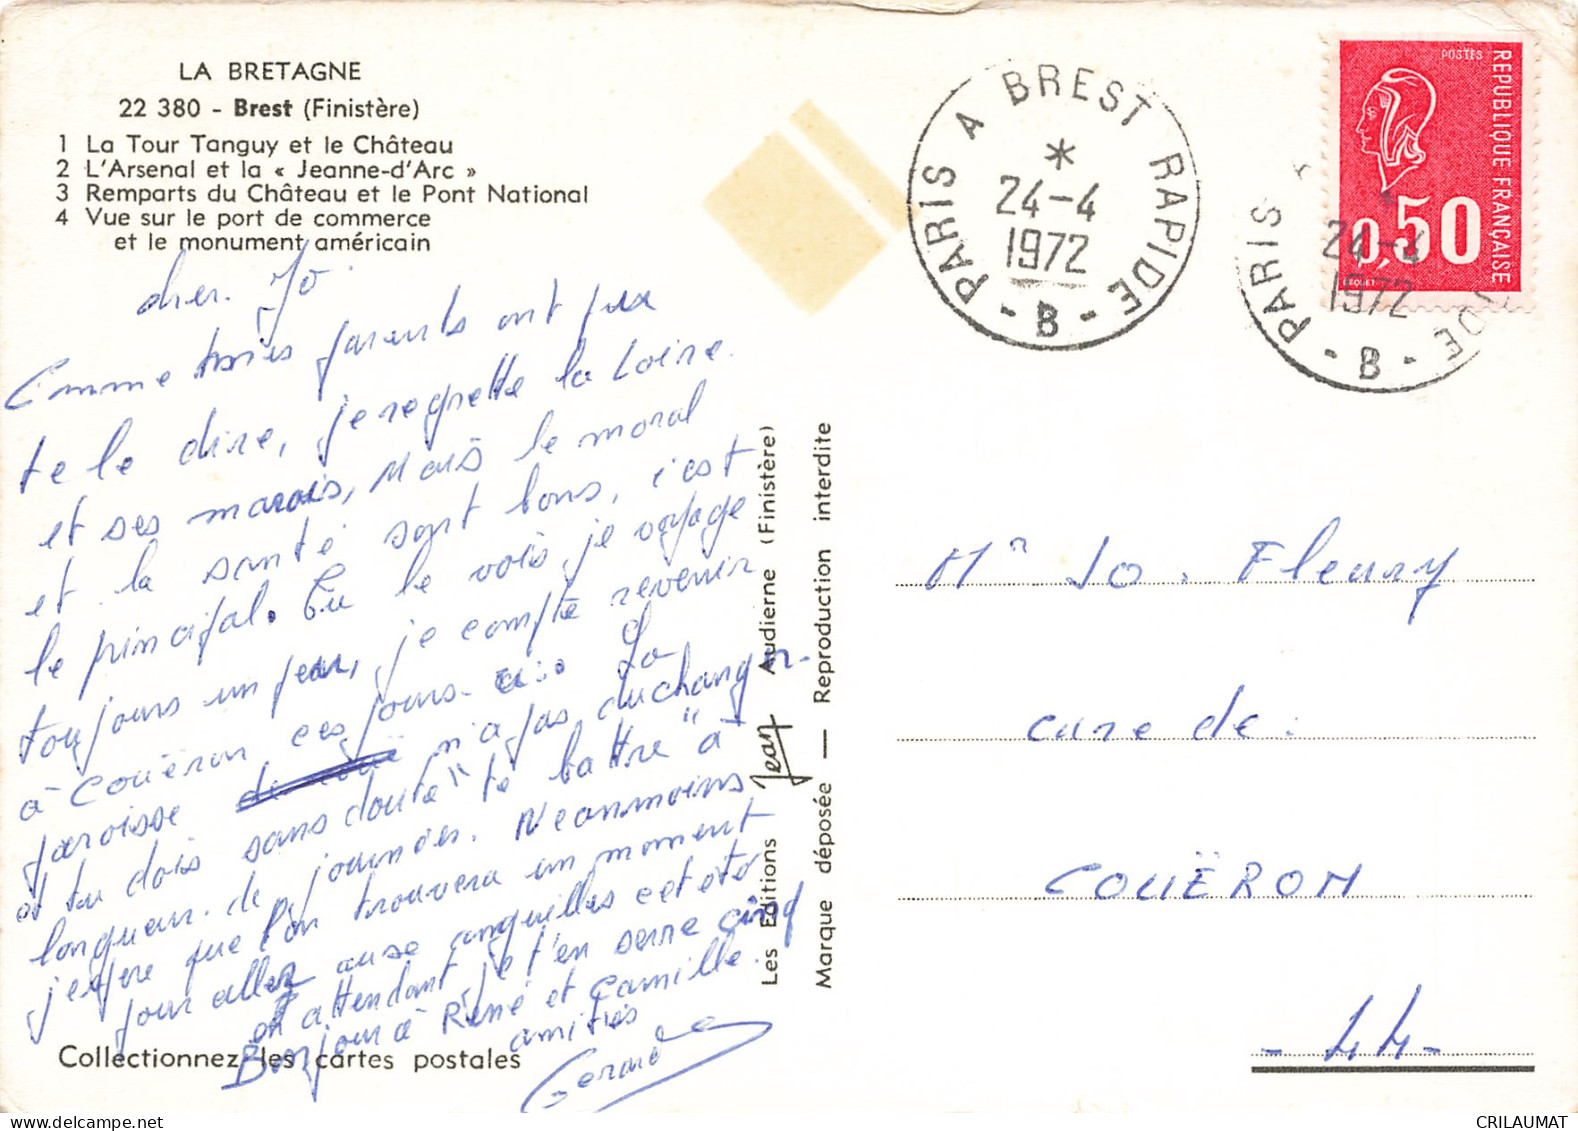 LA BRETAGNE
22 380 - Brest (Finistère)
1 La Tour Tanguy et le Château
2 L'Arsenal et la « Jeanne-d'Arc »
3 Remparts du Château et le Pont National
4 Vue sur le port de commerce
et le monument américain
cher Jo
Comme mes parents ont pu
te le dire, je regrette la Loire
et ses marais, Mais le moral
et la santé sont bons, c'est
le principal. Tu le vois je voyage
toujours un peu, je compte revenir
à Couëron ces jours-ci. La
paroisse n'a pas du changer
et tu dois sans doute "te battre" à
longueur de journées. Neanmoins
j'espère que l'on trouvera un moment
pour allez aux anguilles cet été
en attendant je t'en serre cinq
Bonjour à René et Camille.
amitiés
Gerard
Collectionnez les cartes postales
Les Editions Jean Audierne (Finistère)
Marque déposée — Reproduction interdite
PARIS A BREST RAPIDE
*
24-4
1972
- B -
PARIS
24-4
1972
- B -
IDE
POSTES
REPUBLIQUE FRANÇAISE
0,50
BEQUET
Mr Jo. Fleury
cure de.
COUËRON
- 44 -
CRILAUMAT